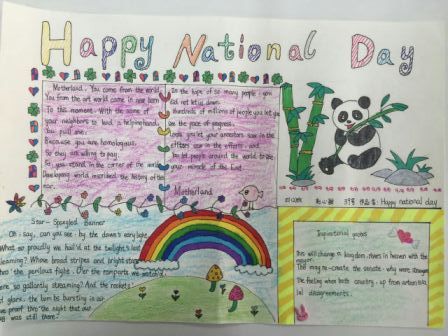 Happy National Day
Motherland, You come from the world
You from the art world came in new born
To this moment. With the some of
your neighbors to lend a helping hand.
You pull one.
Because you are homologous
So they are willing to pay
So you stand in the corner of the world
Developing world inscribed the history of the
nor.
In the hope of so many people - you
did not let us down.
Hundreds of millions of people you let you
see the pace of progress.
Since you let your ancestors saw in the
efforts saw in the efforts - and
You let people around the world to see
your - miracle of the East
Motherland
: Happy national day
Star - Spangled Banner
Oh - say, can you see - by the dawn's early light
What so proudly we hail'd at the twilight's last
gleaming? Whose broad stripes and bright stars
thro' the perilous fight. O'er the ramparts we watch'd
were so gallantly streaming? And the rockets'
red glare, the bombs bursting in air
Gave proof thro' the night that our
flag was still there!
Inspirational quotes
This will change a kingdom, rivers in heaven with the
The maybe - create the senate - why were
the feeling when both country - up from
disagreements.